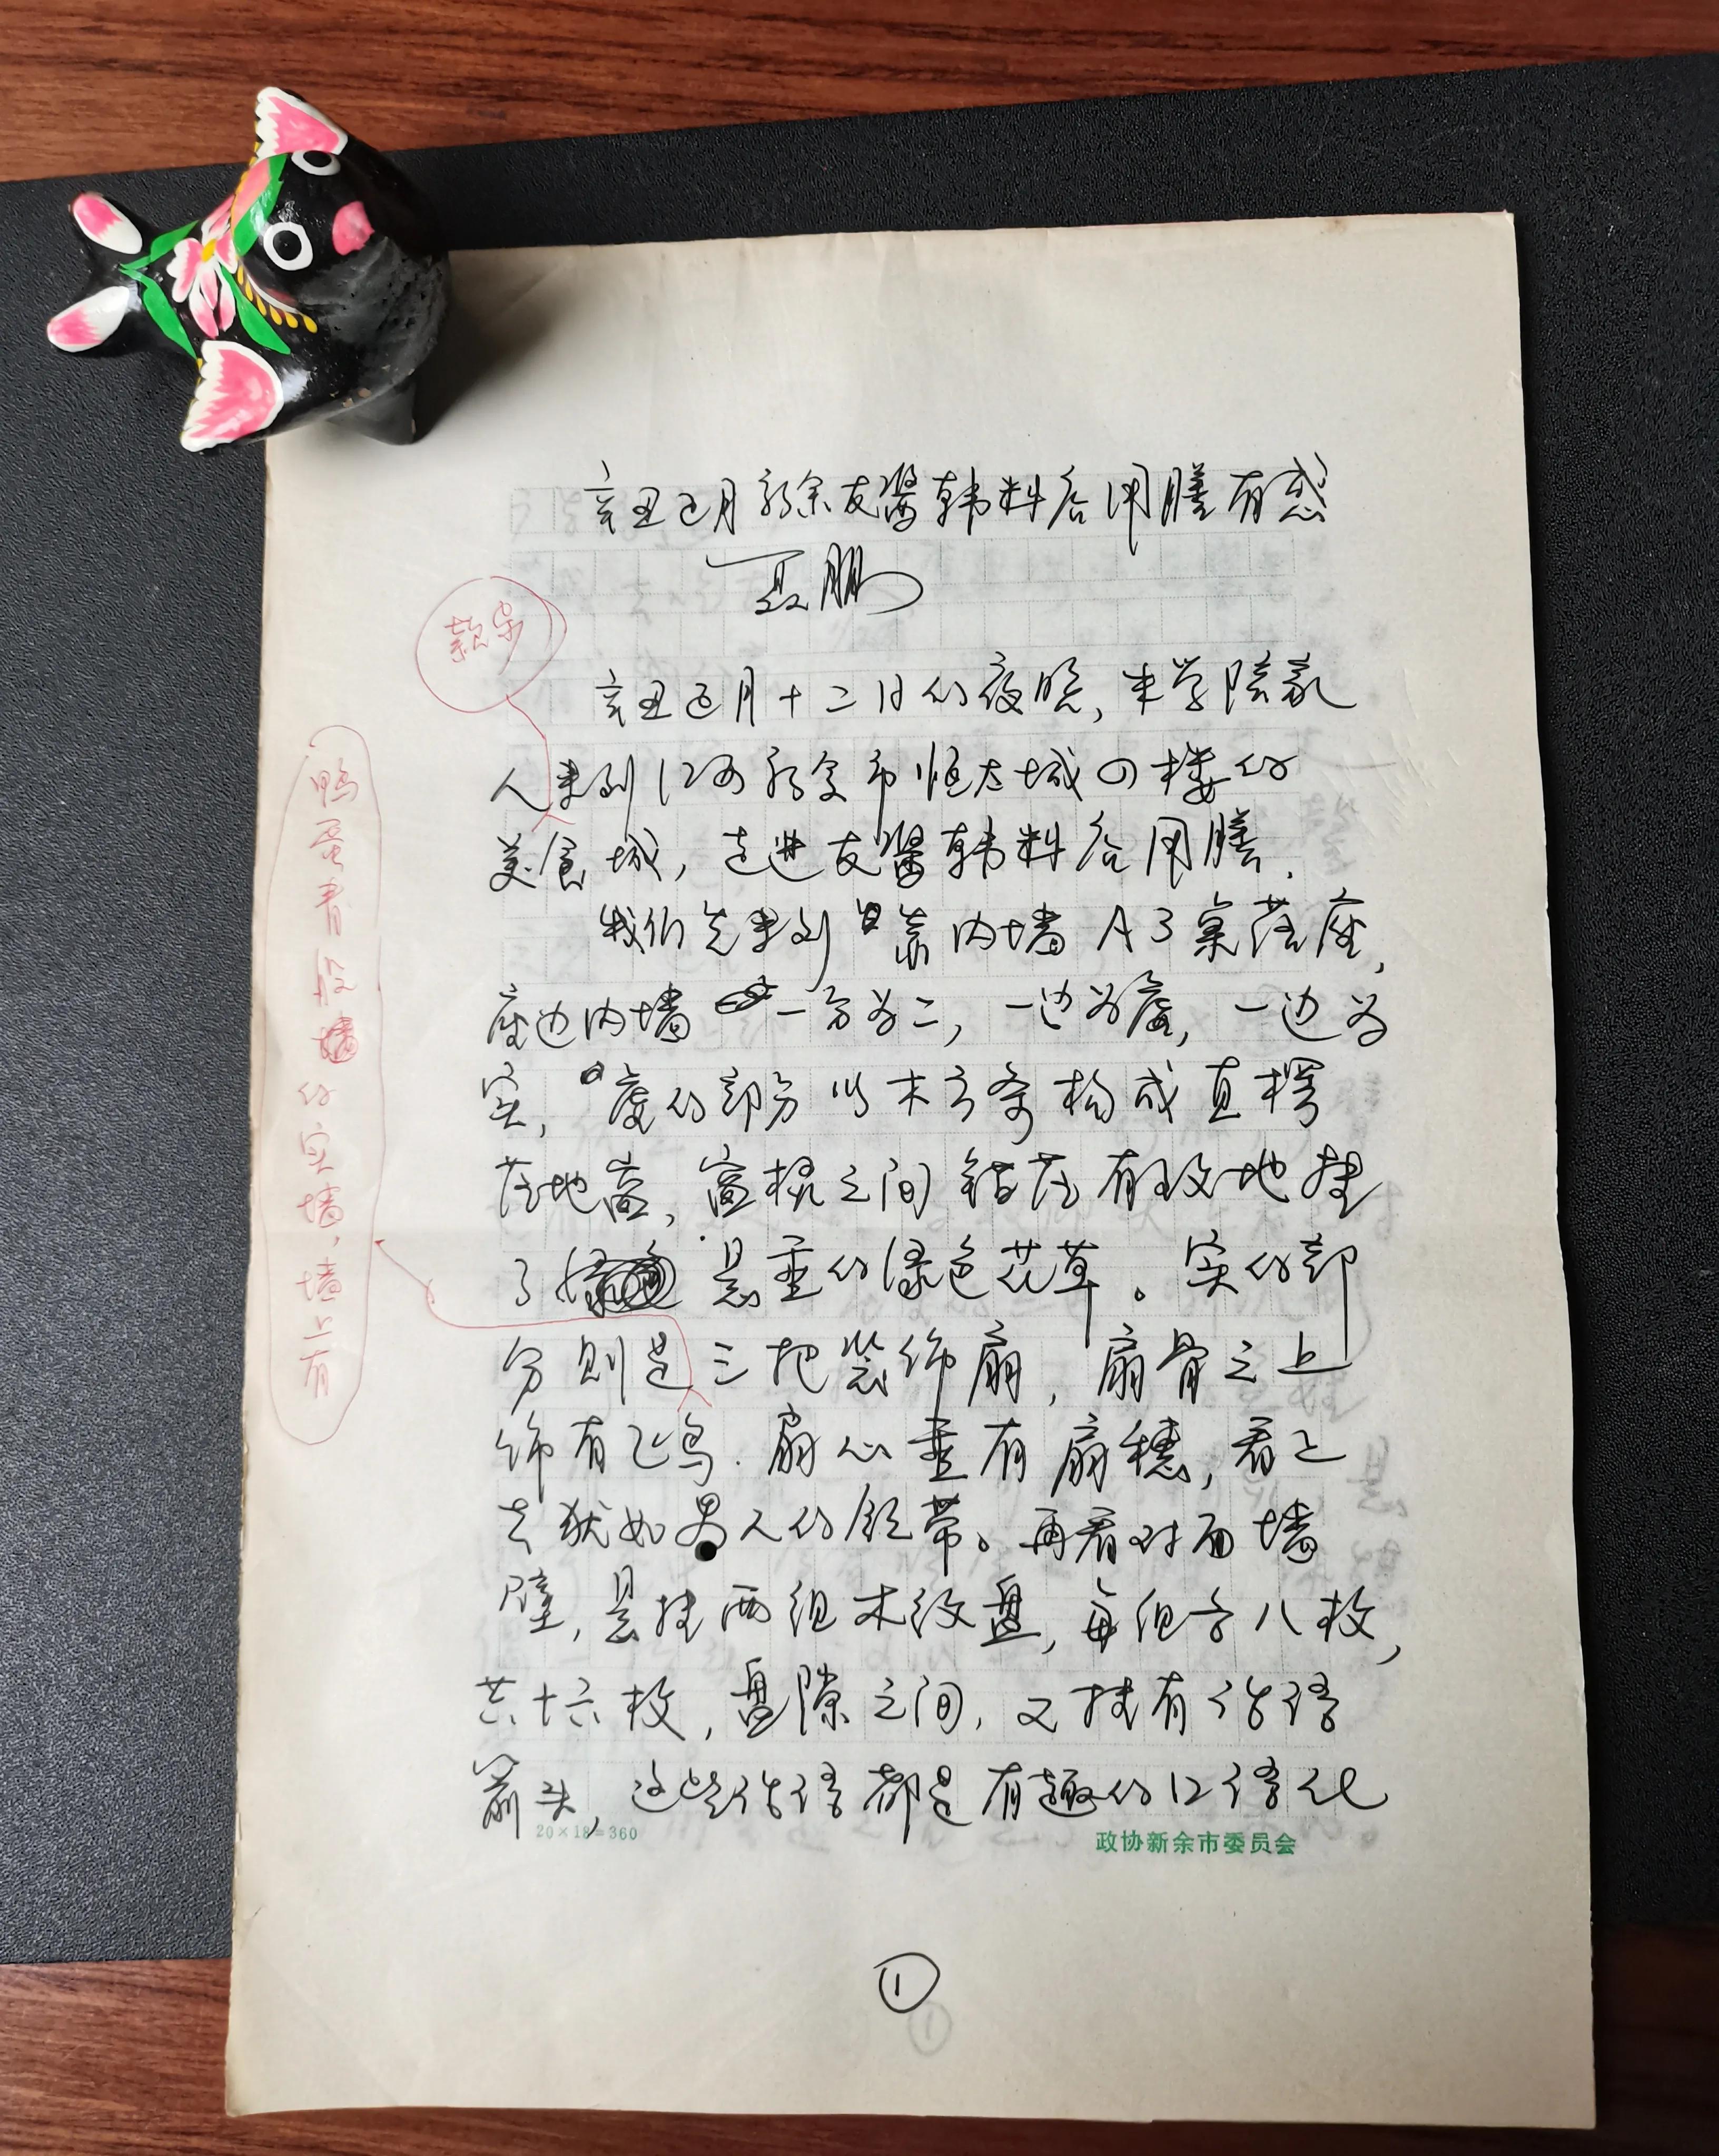 辛丑正月新余友酱韩料启用膳有感
聂鹏
款字
辛丑正月十二日的夜晚，半学院家
人来到江西新余市恒太城四楼的
美食城，走进友酱韩料启用膳.
我们先来到靠内墙A3桌落座，
座边内墙一分为二，一边为虚，一边为
实，虚的部分以木方条构成直楞
落地窗，窗棂之间错落有致地挂
了悬垂的绿色花草。实的部
分则是三把装饰扇，扇骨之上
饰有飞鸟.扇心垂有扇穗，看上
去犹如男人的领带。再看对面墙
壁，悬挂两组木纹盘，每组各八枚，
共十六枚，盘隙之间，又挂有俗语
箭头，这些俗语都是有趣的口语化
鸭蛋青的实墙，墙上有
20×18=360
政协新余市委员会
1